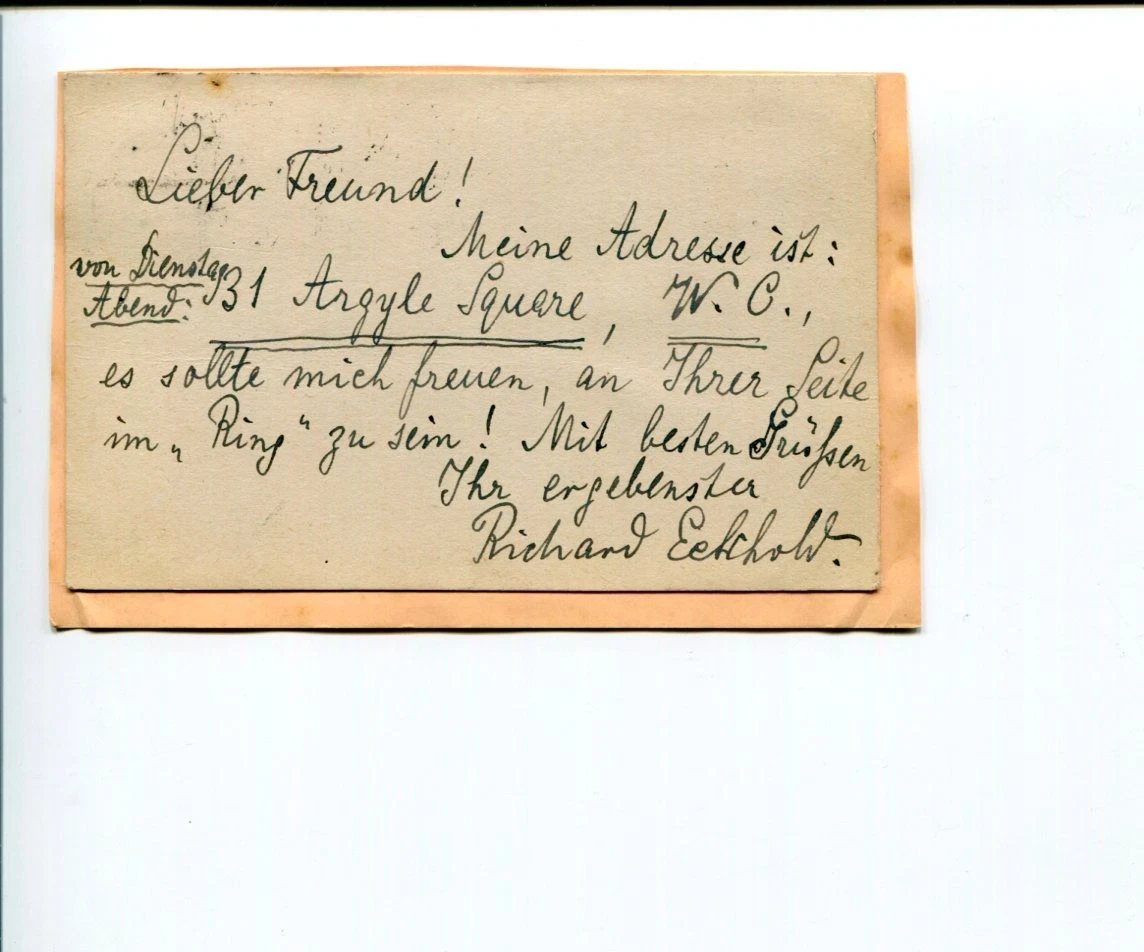 Lieber Freund!
Meine Adresse ist:
von Dienstag
Abend: 31 Argyle Square, W. C.,
es sollte mich freuen, an Ihrer Seite
im „Ring“ zu sein! Mit besten Grüßen
Ihr ergebenster
Richard